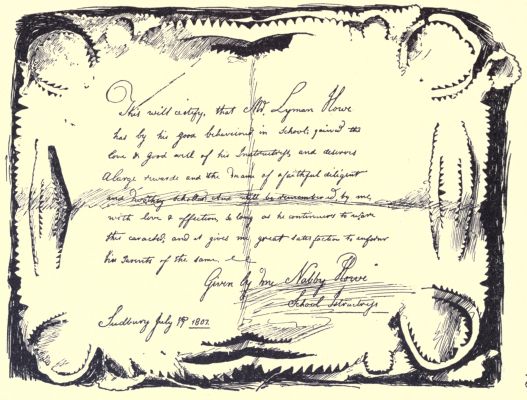 This will certify, that Mr. Lyman Howe
has by his good behaviour in School, gained the
love & good will of his Instructress, and deserves
a large rewards and the name of a faithful diligent
and worthy scholar. And will be remembered by me
with love & affection, so long as he continues to
this caracter, and it gives me great satisfaction to inform
his Parents of the same. &c &c
Given by me Nabby Howe
School Instructress
Sudbury July 1807.